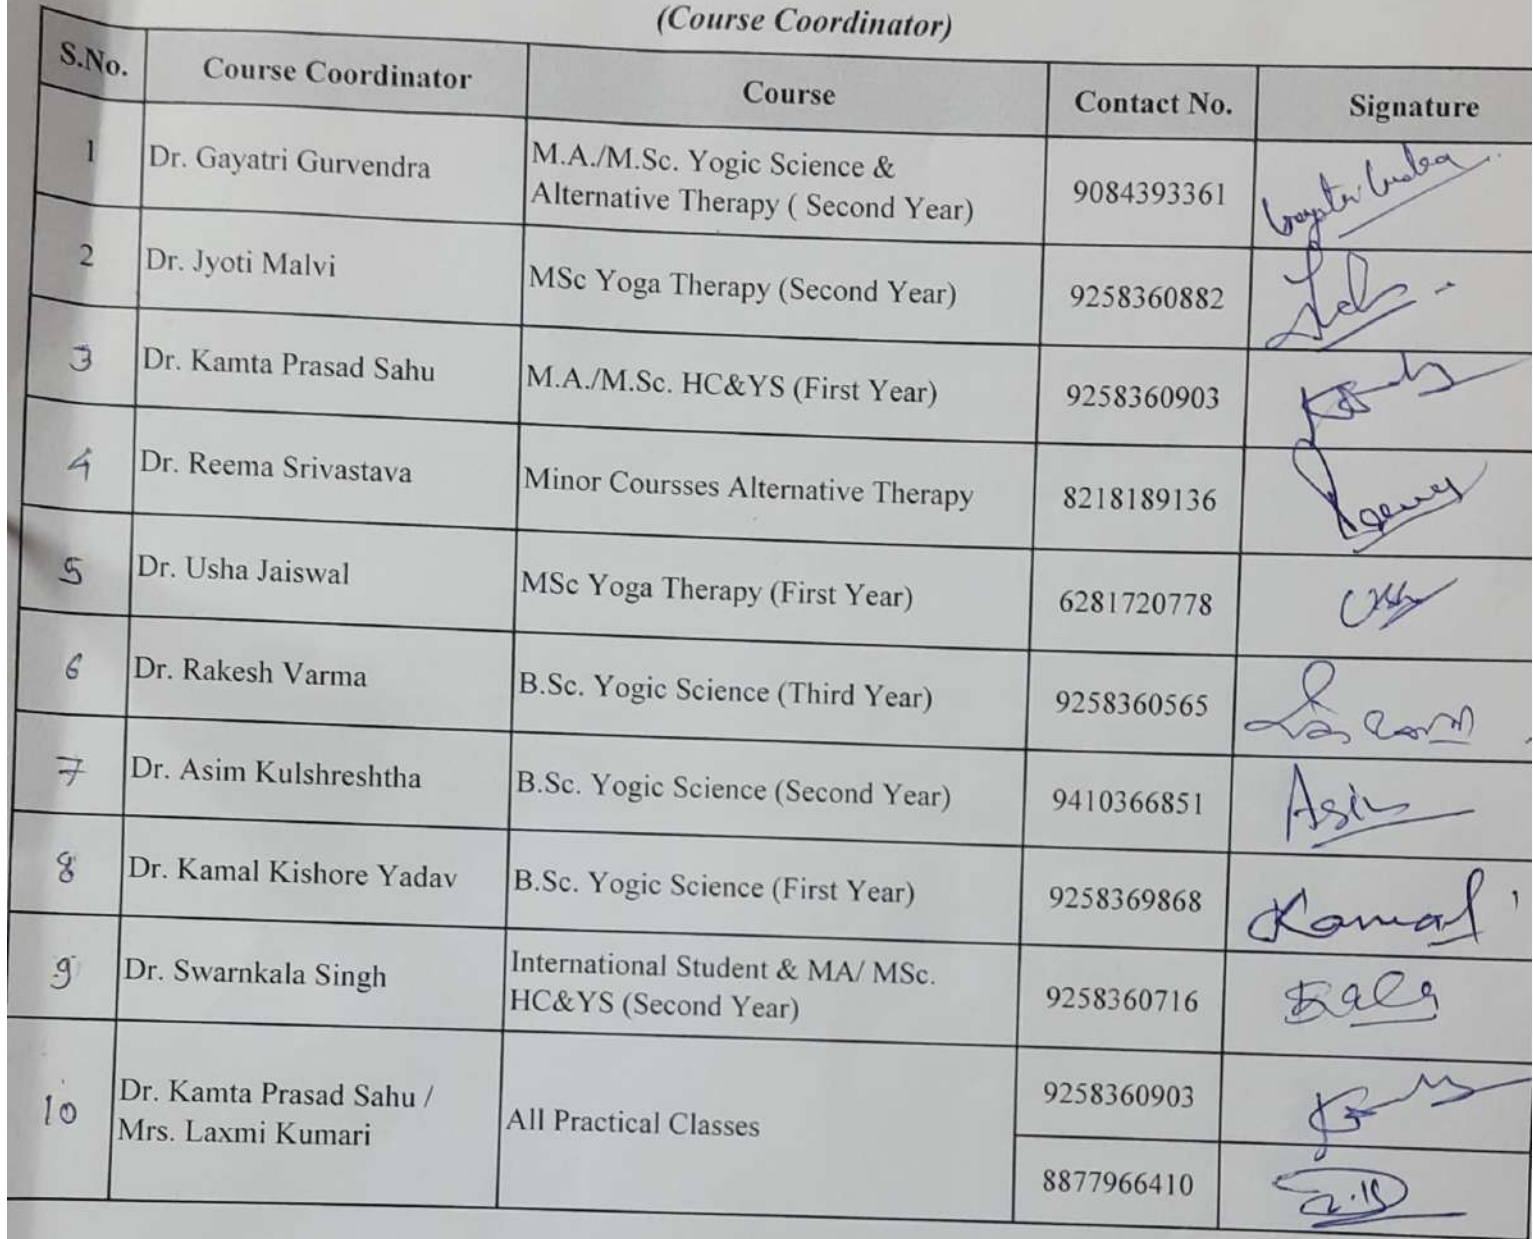 (Course Coordinator)
S.No. Course Coordinator Course Contact No. Signature
1 Dr. Gayatri Gurvendra M.A./M.Sc. Yogic Science &
Alternative Therapy ( Second Year) 9084393361
2 Dr. Jyoti Malvi MSc Yoga Therapy (Second Year) 9258360882
3 Dr. Kamta Prasad Sahu M.A./M.Sc. HC&YS (First Year) 9258360903
4 Dr. Reema Srivastava Minor Coursses Alternative Therapy 8218189136
5 Dr. Usha Jaiswal MSc Yoga Therapy (First Year) 6281720778
6 Dr. Rakesh Varma B.Sc. Yogic Science (Third Year) 9258360565
7 Dr. Asim Kulshreshtha B.Sc. Yogic Science (Second Year) 9410366851 Asim
8 Dr. Kamal Kishore Yadav B.Sc. Yogic Science (First Year) 9258369868 Kamal
9 Dr. Swarnkala Singh International Student & MA/ MSc.
HC&YS (Second Year) 9258360716 
10 Dr. Kamta Prasad Sahu /
Mrs. Laxmi Kumari All Practical Classes 9258360903
8877966410